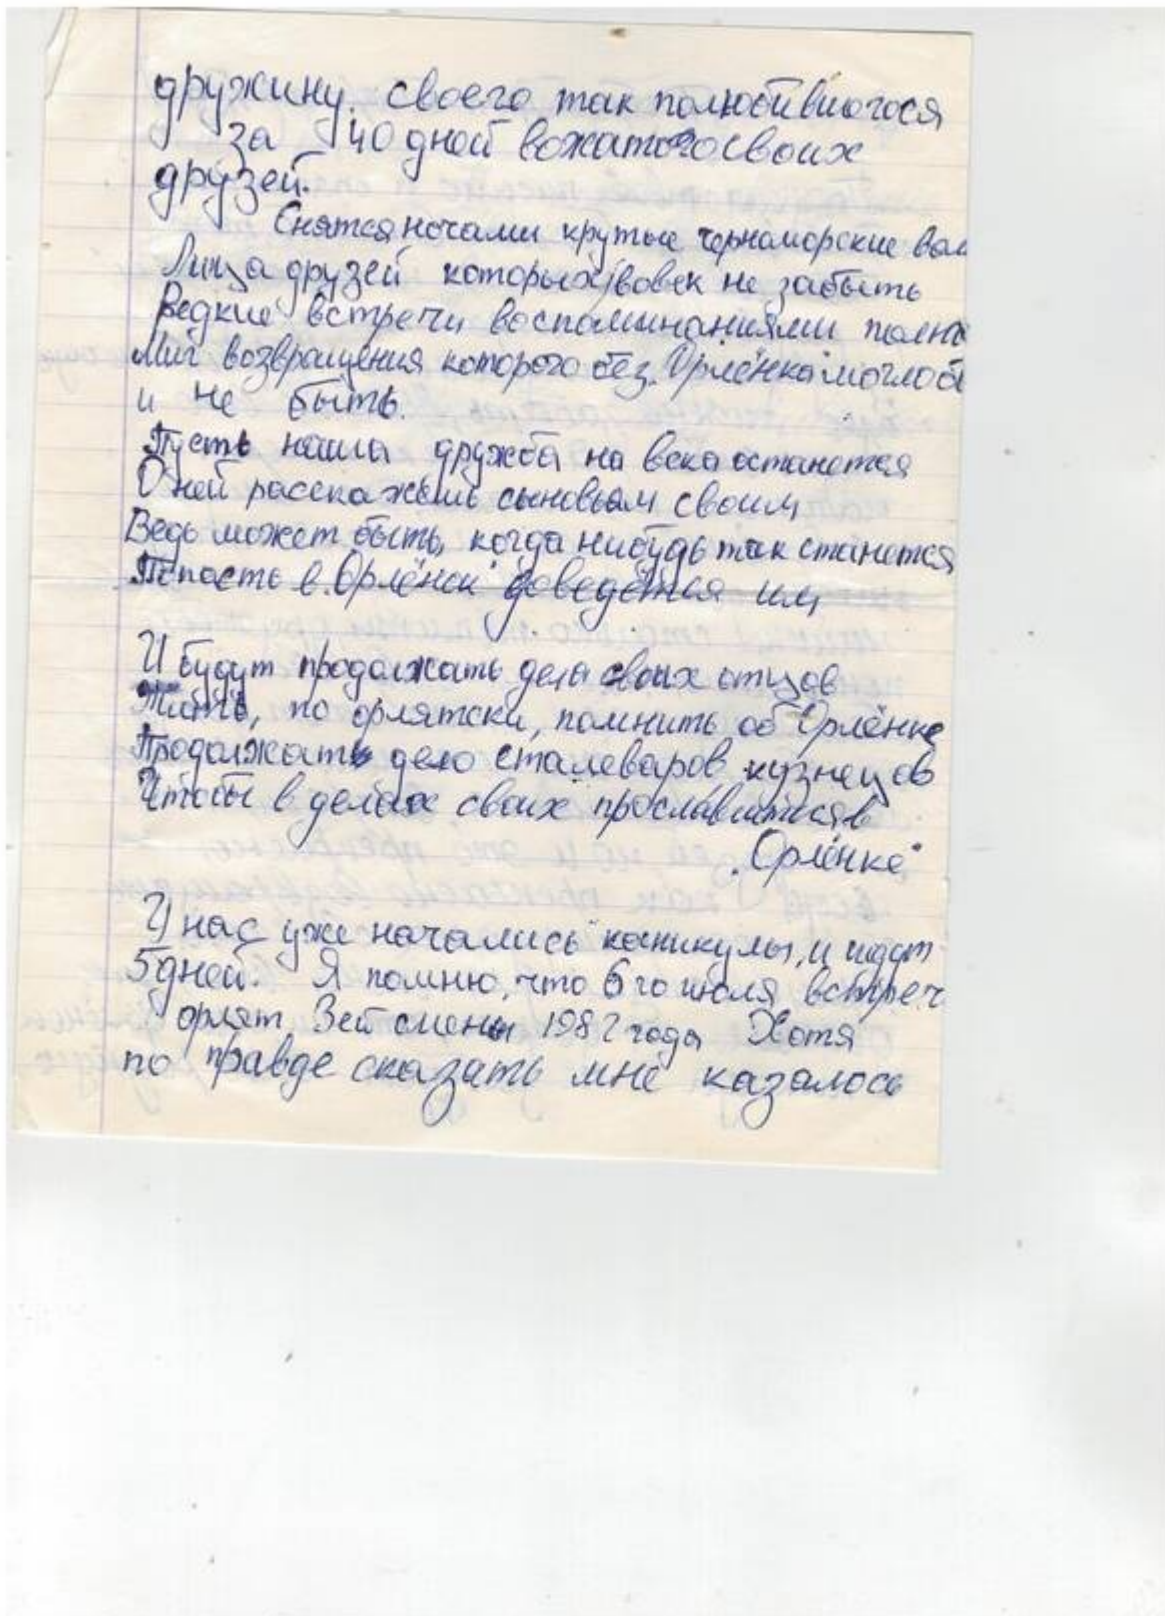 дружину, своего так полюбившегося
за 40 дней вожатого своих
друзей.
Снятся ночами крутые черноморские вол
Лица друзей которых вовек не забыть
Редкие встречи воспоминаниями полны
Миг возвращения которого без „Орлёнка" могло б
и не быть.
Пусть наша дружба на века останется
О ней расскажешь сыновьям своим
Ведь может быть, когда нибудь так станется
Попасть в „Орлёнок" доведётся им
И будут продолжать дела своих отцов
Жить, по орлятски, помнить об „Орлёнке
Продолжать дело сталеваров кузнецов
Чтобы в делах своих прославиться в
„Орлёнке"
У нас уже начались каникулы, и идут
5 дней. Я помню, что 6го июля встреч
орлят 3ей смены 1982 года Хотя
по правде сказать мне казалось